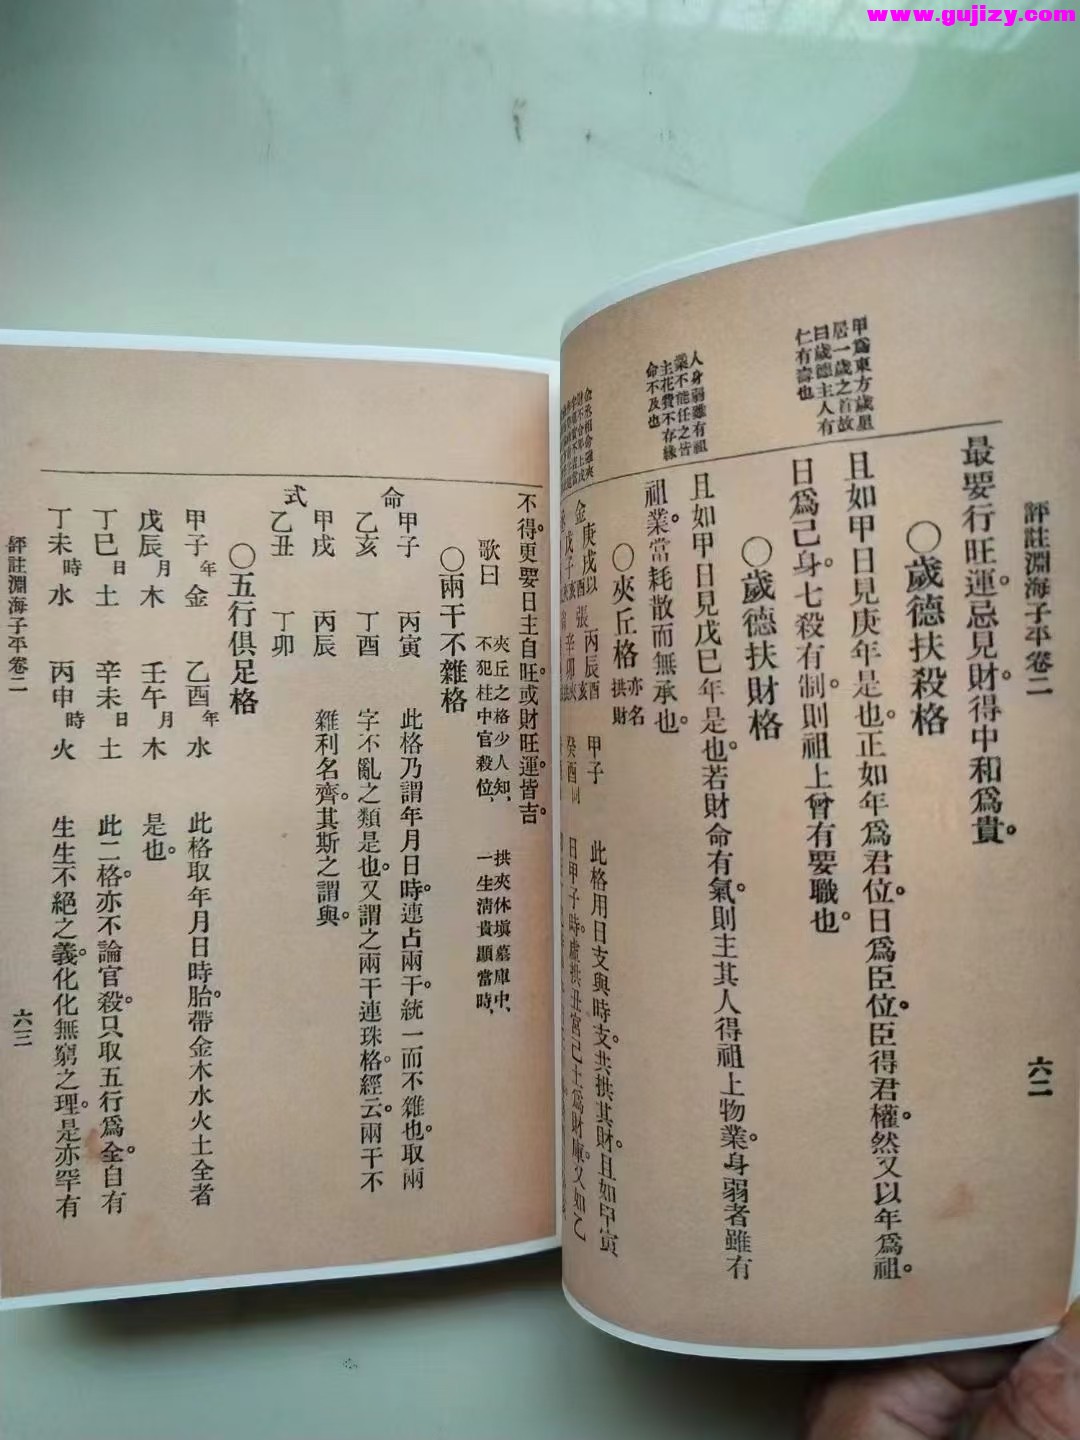 www.gujizy.com
評註淵海子平卷二
六二
甲爲東方歲星
居一歲之首故
曰歲德主人有
仁有壽也
人身弱雖有祖
業不能任之皆
主花費不存緣
命不及也
最要行旺運。忌見財。得中和爲貴。
○歲德扶殺格
且如甲日見庚年是也。正如年爲君位。日爲臣位。臣得君權。然又以年爲祖。
日爲己身。七殺有制。則祖上曾有要職也。
○歲德扶財格
且如甲日見戊巳年是也。若財命有氣。則主其人得祖上物業。身弱者雖有
祖業。當耗散而無承也。
○夾丘格 亦名拱財
金 庚戌以酉 張 丙辰酉亥 甲子
戊子 辛卯 癸酉
此格用日支與時支。共拱其財。且如甲寅
日甲子時。虛拱丑宮己土爲財庫。又如乙
不得。更要日主自旺。或財旺運。皆吉。
歌曰 夾丘之格少人知、 拱夾休塡墓庫中、
不犯柱中官殺位、 一生淸貴顯當時、
○兩干不雜格
命式
甲子 丙寅 此格乃謂年月日時。連占兩干。統一而不雜也。取兩
乙亥 丁酉 字不亂之類是也。又謂之兩干連珠格。經云。兩干不
甲戌 丙辰 雜利名齊。其斯之謂與。
乙丑 丁卯
○五行俱足格
甲子年金 乙酉年水 此格取年月日時胎。帶金木水火土全者
戊辰月木 壬午月木 是也。
丁巳日土 辛未日土 此二格。亦不論官殺。只取五行爲全。自有
丁未時水 丙申時火 生生不絕之義。化化無窮之理。是亦罕有
評註淵海子平卷二
六三